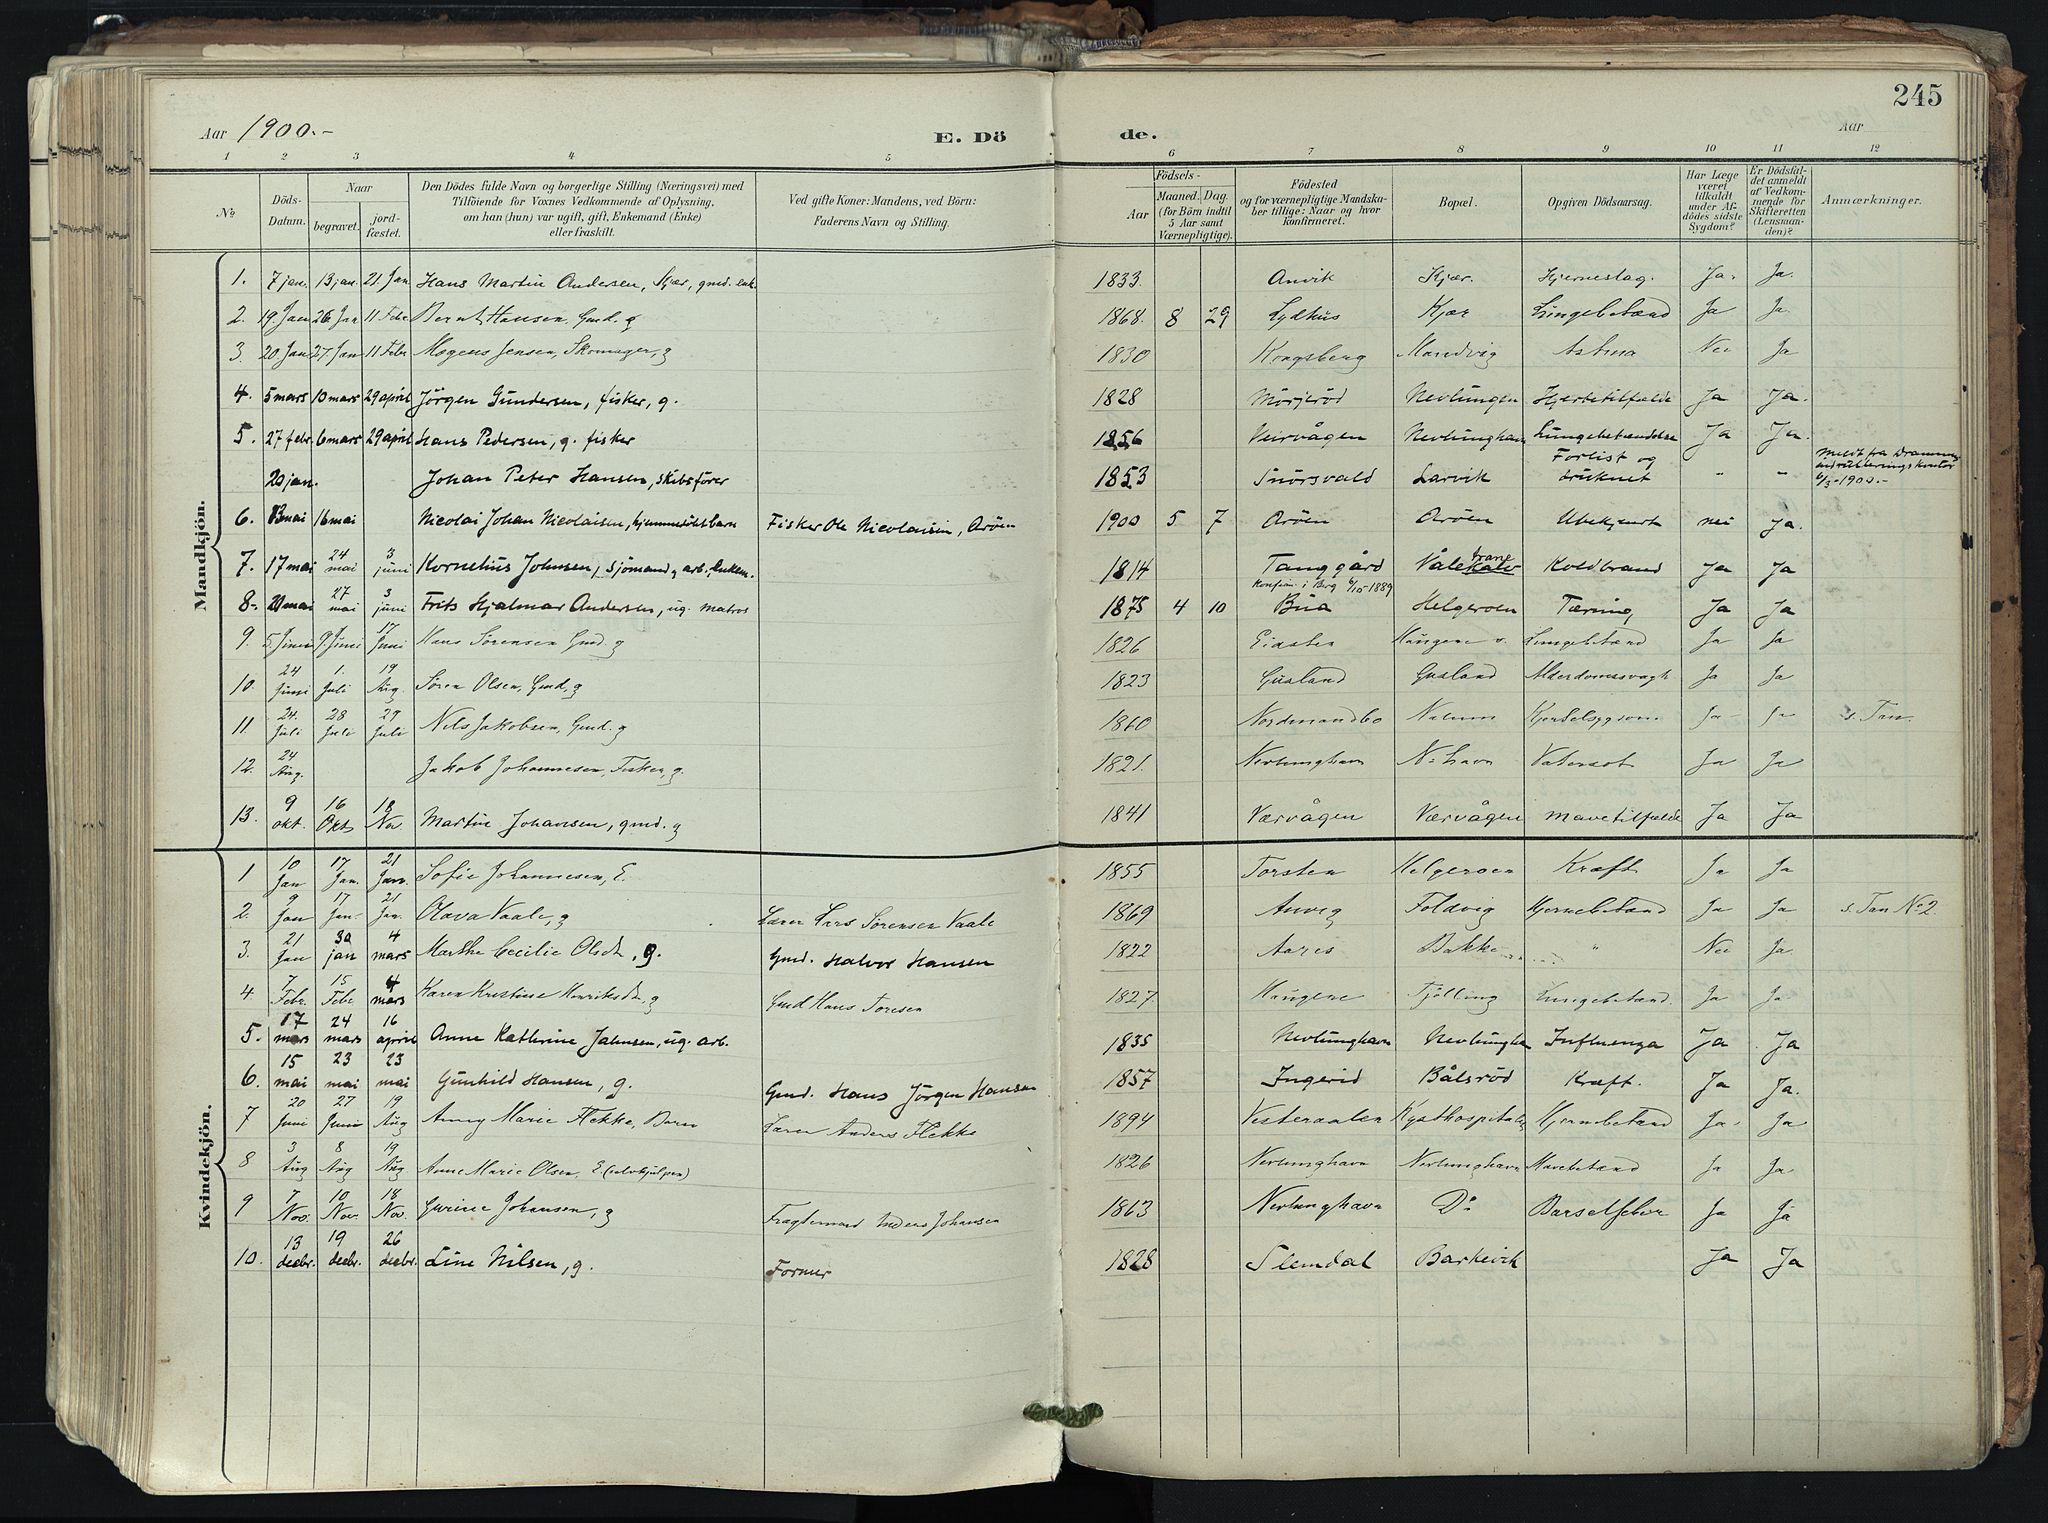 245
Aar 1900.-
E. Dö
de.
Aar
1 2 3 4 5 6 7 8 9 10 11 12
No
Döds-Datum.
Naar
begravet.
jord-fæstet.
Den Dödes fulde Navn og borgerlige Stilling (Næringsvei) med
Tilföiende for Voxnes Vedkommende af Oplysning,
om han (hun) var ugift, gift, Enkemand (Enke)
eller fraskilt.
Ved gifte Koner: Mandens, ved Börn:
Faderens Navn og Stilling.
Födsels-
Aar
Maaned. Dag.
(for Börn indtil
5 Aar samt
Værnepligtige).
Födested
og for værnepligtige Mandska-
ber tillige: Naar og hvor
konfirmeret.
Bopæl.
Opgiven Dödsaarsag.
Har Læge
været
tilkaldt
under Af-
dödes sidste
Sygdom?
Er Dödsfal-
det anmeldt
af Vedkom-
mende for
Skifteretten
(Lensman-
den)?
Anmærkninger.
Mandkjön.
1. 7 jan. 13 jan. 21. Jan Hans Martin Andersen, Kjær, gmd. enk. 1833. Anvik Kjær. Hjerneslag. Ja. Ja.
2. 19 Jan 26 Jan 11 Febr Bernt Hansen, Gmd. g 1868. 8 29 Lydhus Kjær Lungebetænd Ja Ja.
3. 20 Jan 27 Jan 11 Febr Mogens Jensen, Skomager, g 1830 Kongsberg Manvig Astma Nei Ja
4. 5 mars 10 mars 29 april Jörgen Gundersen, fisker, g. 1828 Mörjeröd Nevlungen Hjertetilfælde Ja Ja.
5. 27 febr. 6 mars 29 april Hans Pedersen, g. fisker 1856 Veirvågen Nevlunghavn Lungebetændelse Ja Ja.
20 jan. Johan Peter Hansen, skibsförer 1853 Snörsvald Larvik Forlist og druknet " " Meldt fra Drammens indrulleringskontor 6/3-1900.-
6. 13 mai 16 mai Nicolai Johan Nicolaisen, hjemmedöbt barn Fisker Ole Nicolaisen, Aröen 1900 5 7 Aröen Aröen Ubekjendt nei Ja.
7. 17 mai 24 mai 3 juni Kornelius Johnsen, sjömand, arb., enkem. 1814 Tanggård Våle Koldbrand Ja Ja
8. 20 mai 27 mai 3 juni Frits Hjalmar Andersen, ug. matros 1875 4 10 Konfirm. i Berg 6/10-1889 Bua Helgeroen Tæring Ja Ja
9. 5. Juni 9. Juni 17 Juni Hans Sörensen Gmd. g 1826 Eidsten Haugene Lungebetænd Ja Ja
10. 24 Juni 1. Juli 19 Aug. Sören Olsen, Gmd, g 1823 Gusland Gusland Alderdomssvagh Ja Ja
11. 24. Juli 28 Juli 29 Juli Nils Jakobsen, Gmd. g 1860 Nordmandbo Nalum Hjertesygdom Ja Ja
12. 24 Aug. Jakob Johannesen, Fisker, g. 1821. Nevlunghavn N. havn Vatersot Ja Ja
13. 9 okt. 16 Okt 18 Nov Martin Johansen, gmd. g 1841 Værvågen Værvågen Mavetilfælde Ja Ja
Kvindekjön.
1 10 Jan 17 Jan. 21 Jan. Sofie Johannesen, E. 1855 Torsten Helgeroen Kræft Ja Ja
2. 9 Jan 17 Jan. 21 Jan. Olava Vaale, g Lærer Lars Sörensen Vaale 1869 Anvig Foldvig Hjernebetænd Ja Ja
3. 21 Jan 30 jan 4 mars Marthe Cecilie Olsdr, g. Gmd. Halvor Hansen 1822 Aares Bakke " Nei Ja.
4. 7 Febr. 15 Febr 4 mars Karen Kristine Henriksdr, g Gmd Hans Toresen 1827. Haugene Tjölling Lungebetænd. Ja Ja
5. 17 mars 24 mars 16 april Anne Kathrine Johnsen, ug. arb. 1835 Nevlunghavn Nevlunghavn Influenza Ja Ja
6. 15 mai 23 mai 23 mai Gunhild Hansen, g. Gmd. Hans Jörgen Hansen 1857 Ingerid Bålsröd Kræft. Ja Ja.
7 20 Juni 27 Juni 19 Aug Anny Marie Flekke, Barn Lærer Anders Flekke 1894 Vesteraalen Kysthospitalet Hjernebetænd Ja Ja
8 3 Aug 8 Aug 19 Aug Anne Marie Olsen, E. (selvhjulpen) 1826 Nevlunghavn Nevlunghavn Mavebetænd Ja Ja
9 7 Nov. 10 Nov. 18 Nov. Gurine Johansen, g Fragtemand Anders Johansen 1863 Nevlunghavn Do Barselfeber Ja Ja
10. 13 decbr. 19 decbr. 26 decbr. Line Nilsen, g. Former 1828 Slemdal Barkevik Ja Ja